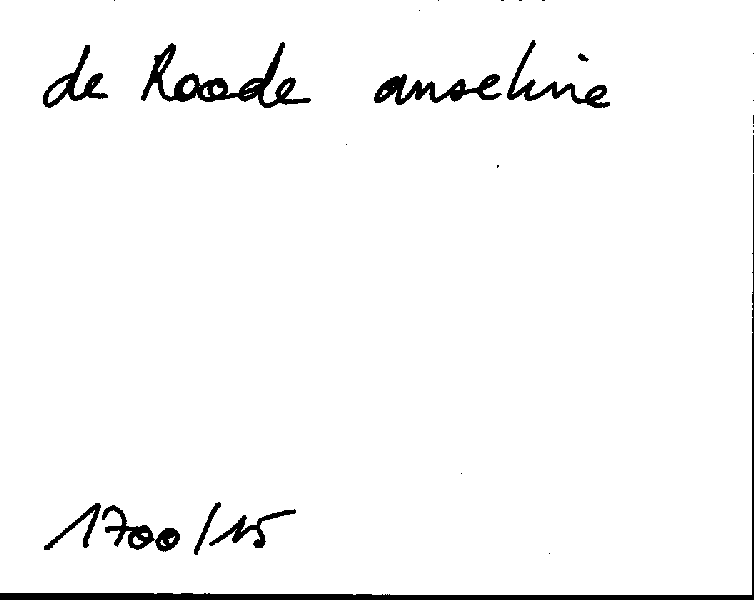 de Roode anseline
1700/15